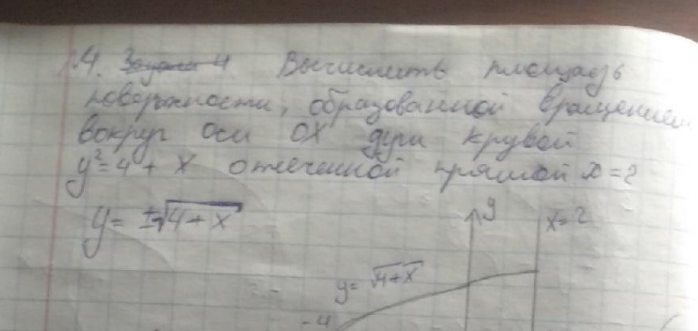 №4. Задача 4. Вычислить площадь
поверхности, образованной вращением
вокруг оси OX дуги кривой
y²=4+x отсеченной прямой x=2
y=±√4+x
y
x=2
y=√4+x
-4